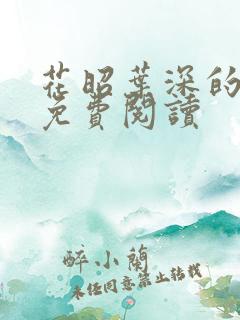 花昭葉深的
免費閱讀
醉小蘭
未經同意禁止轉載